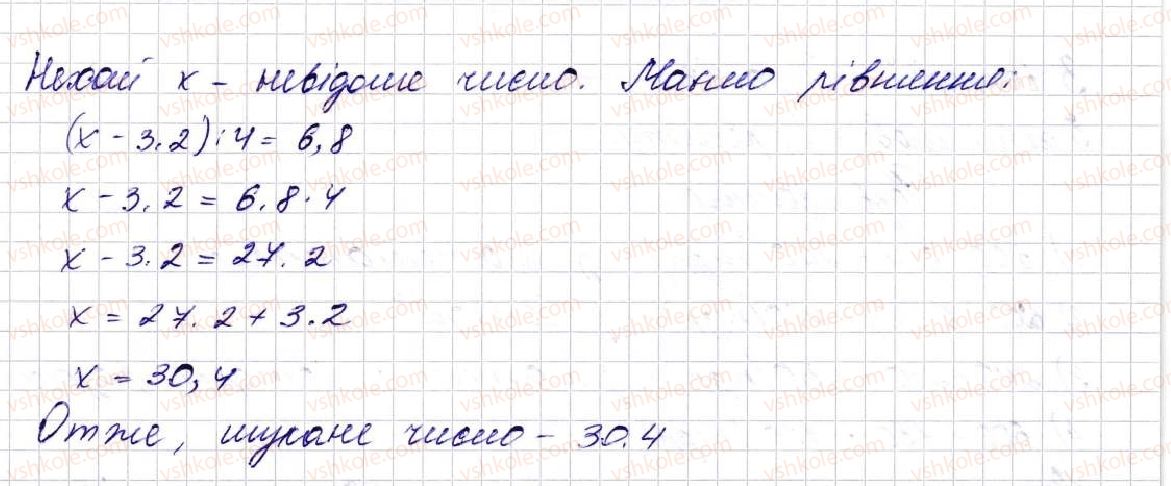 Нехай x – невідоме число. Маємо рівняння:
(x - 3.2) : 4 = 6,8
x - 3.2 = 6.8 · 4
x - 3.2 = 27.2
x = 27.2 + 3.2
x = 30,4
Отже, шукане число – 30.4